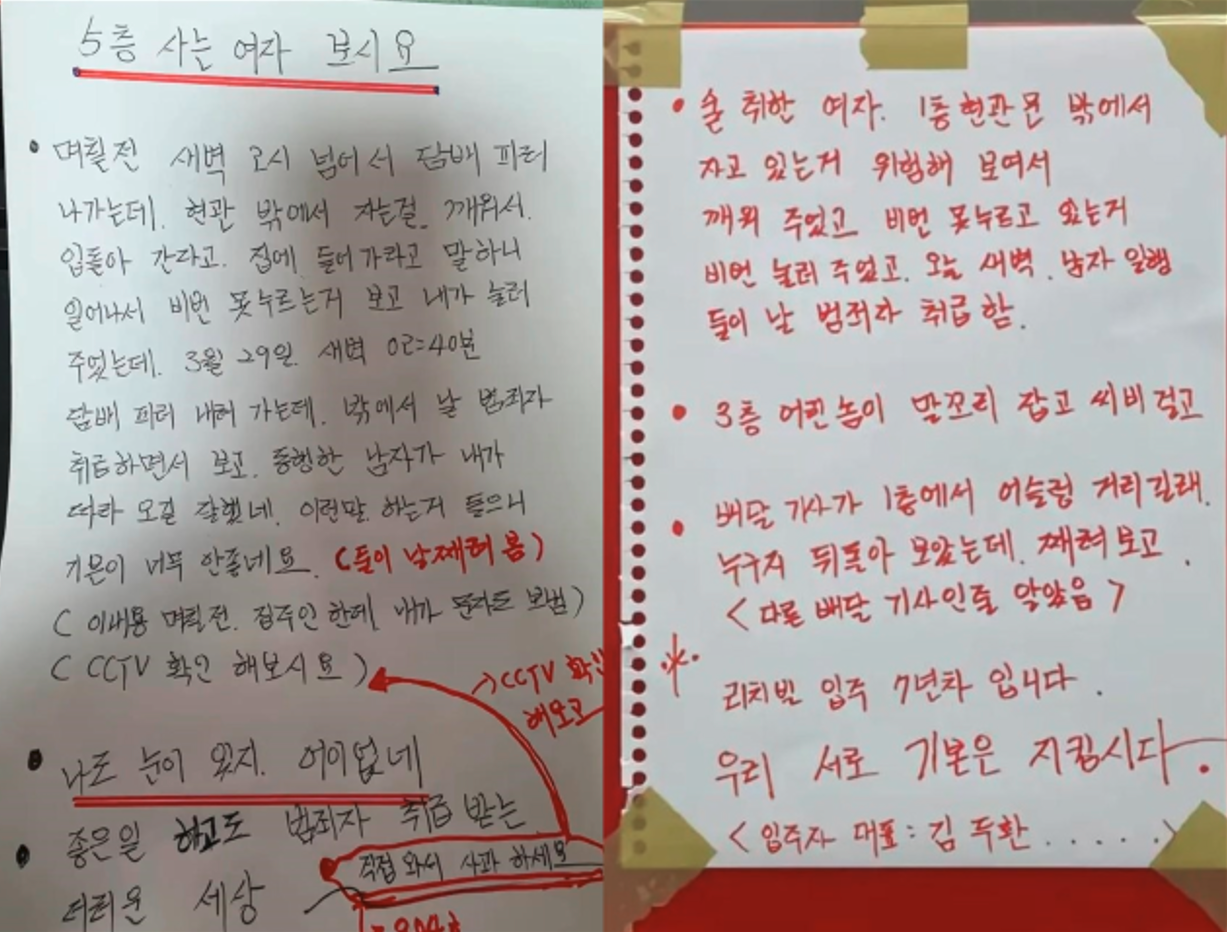 5층 사는 여자 보시요
• 며칠전 새벽 2시 넘어서 담배 피러
나가는데. 현관 밖에서 자는걸. 깨워서.
입돌아 간다고. 집에 들어가라고 말하니
일어나서 비번 못누르는거 보고 내가 눌러
주었는데. 3월 29일. 새벽 02=40분
담배 피러 내려 가는데. 밖에서 날 범죄자
취급하면서 보고. 동행한 남자가 내가
따라 오길 잘했네. 이런말 하는거 들으니
기분이 너무 안좋네요. (둘이 날째려 봄)
(이내용 며칠전. 집주인 한테 내가 문자도 보냄)
(CCTV 확인 해보시요)
→CCTV 확인
해보고
• 나도 눈이 있지. 어이없네
• 좋은일 하고도 범죄자 취급 받는
더러운 세상
직접 와서 사과 하세요
• 술 취한 여자. 1층현관문 밖에서
자고 있는거 위험해 보여서
깨워 주었고 비번 못누르고 있는거
비번 눌러 주었고. 오늘 새벽. 남자 일행
둘이 날 범죄자 취급함.
• 3층 어린놈이 말꼬리 잡고 씨비걸고
• 배달 기사가 1층에서 어슬렁 거리길래.
누구지 뒤돌아 보았는데. 째려보고.
<다른 배달 기사인줄 알았음>
※ 리치빌 입주 7년차 입니다.
우리 서로 기본은 지킵시다.
<입주자 대표: 김두환.....>